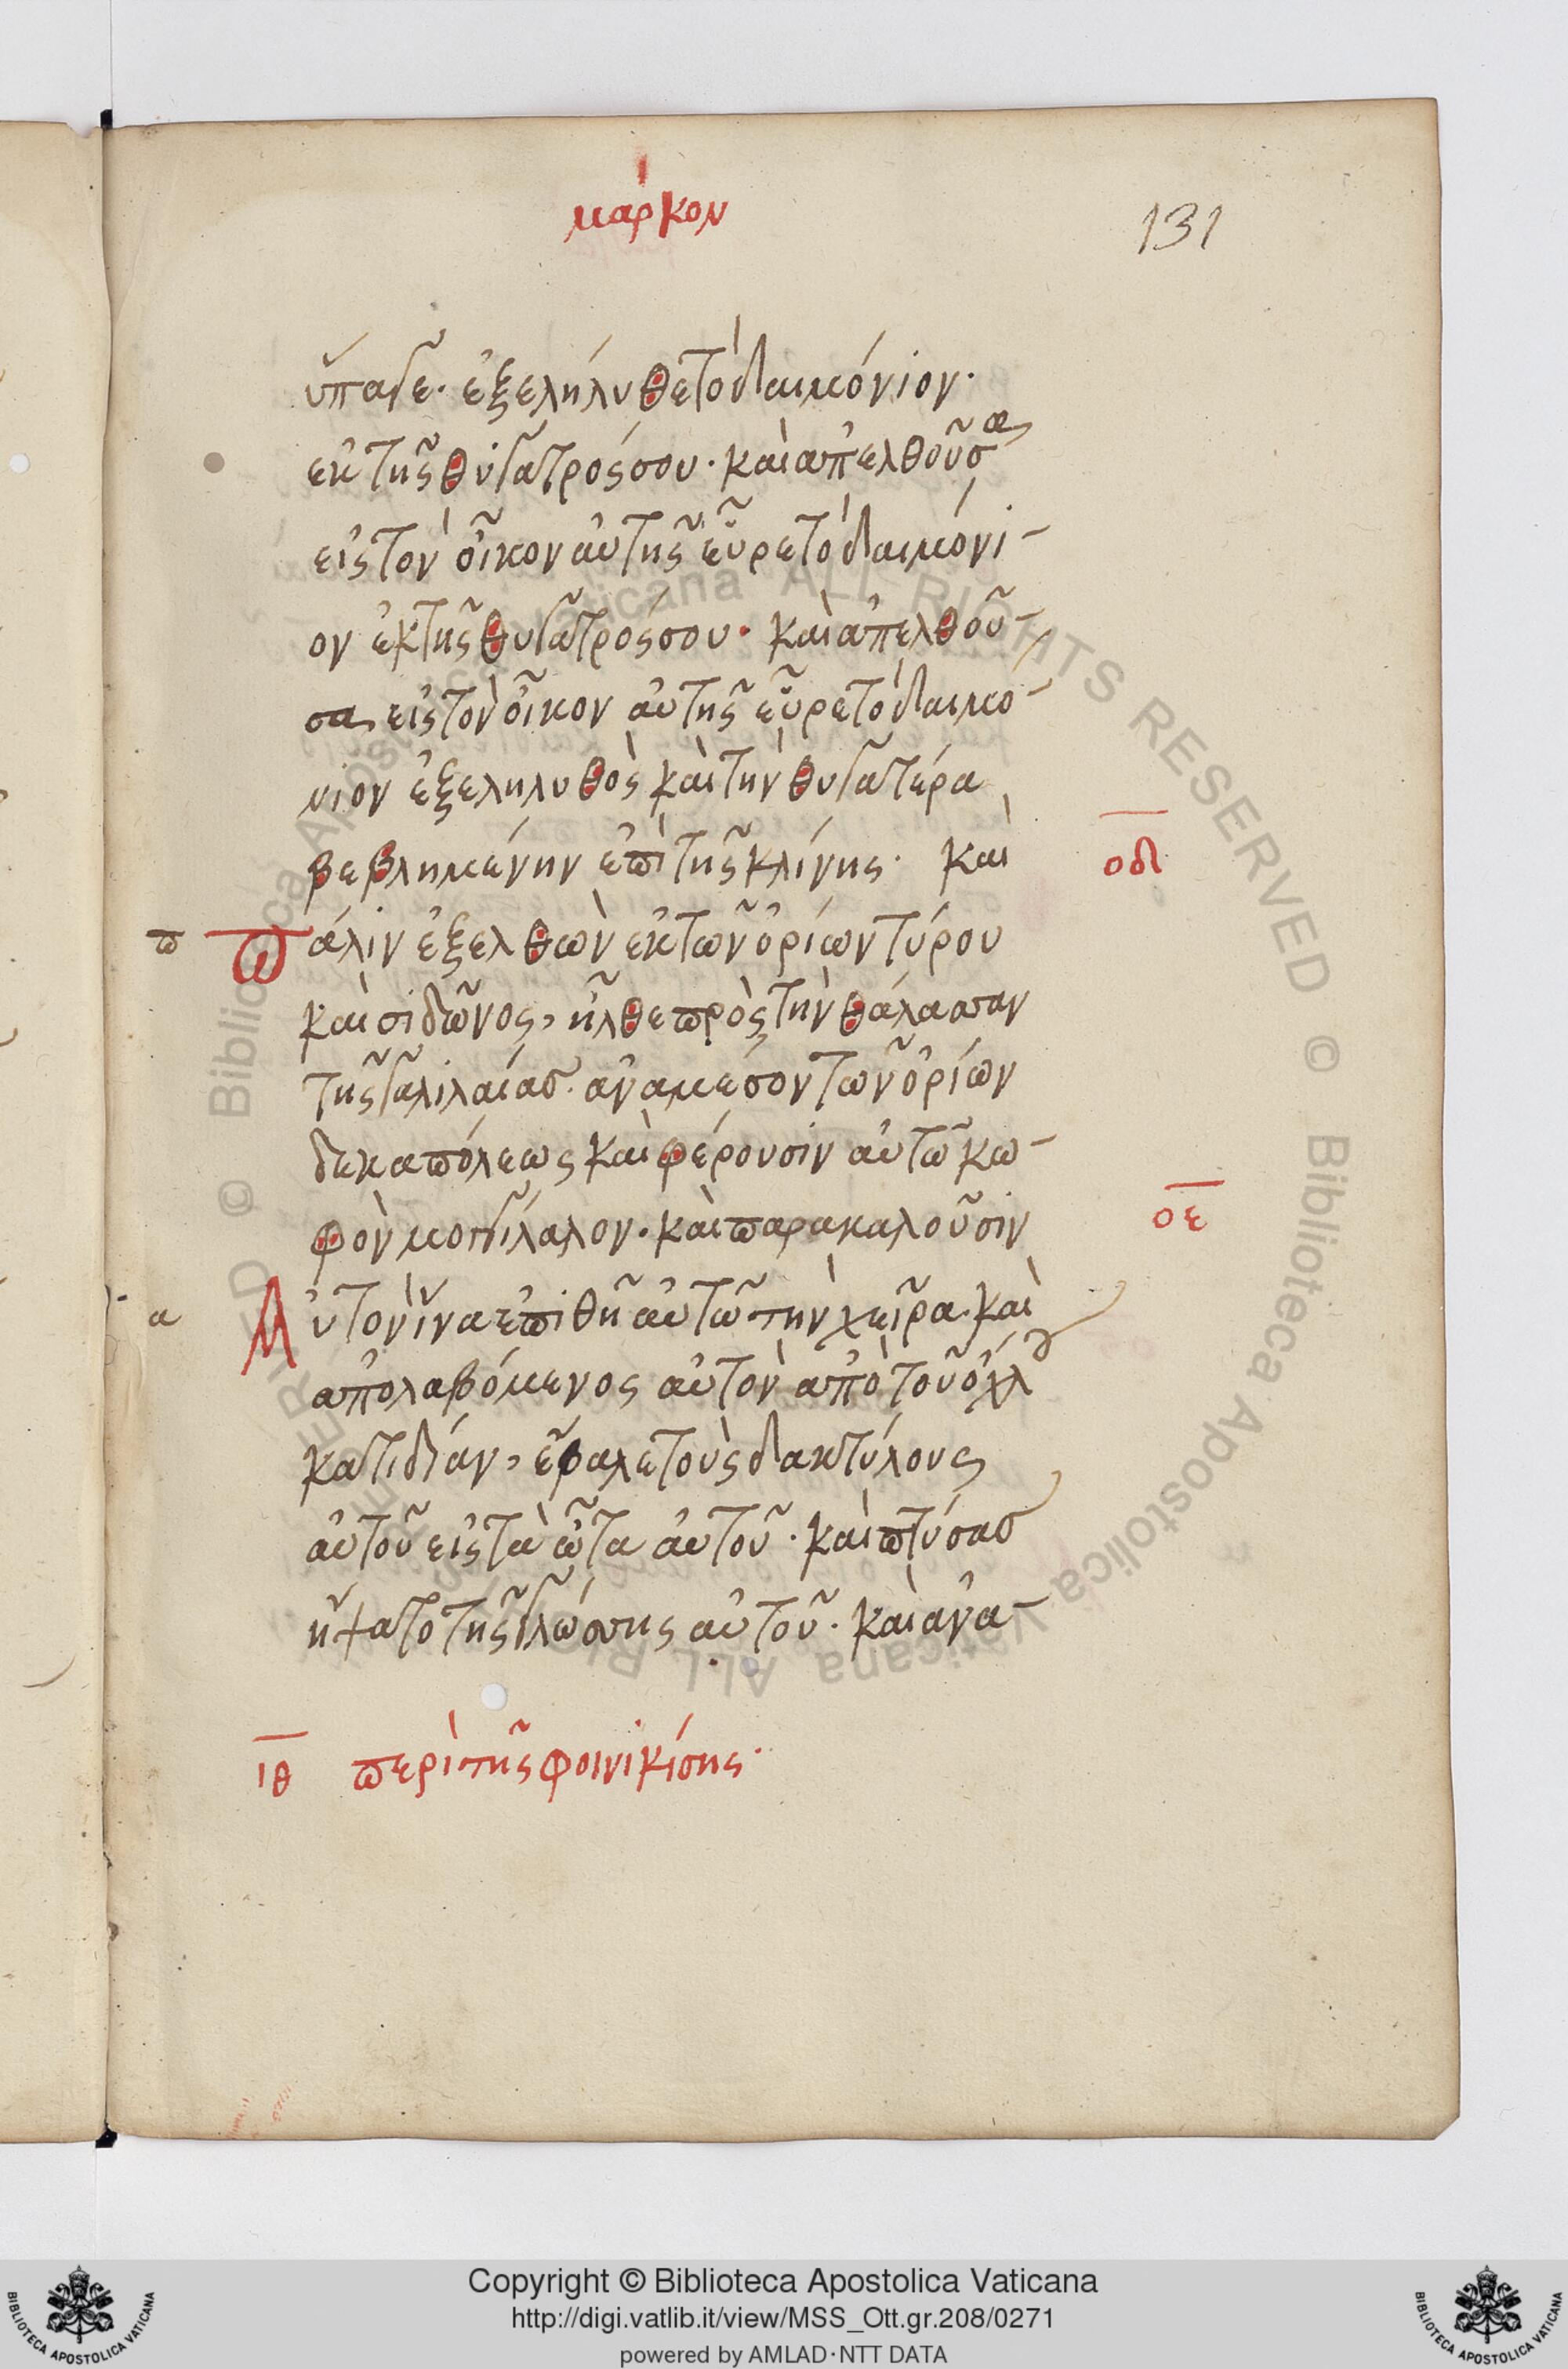 μάρκον
131
ὕπαγε· ἐξελήλυθε τὸ δαιμόνιον·
ἐκ τῆς θυγατρός σου· καὶ ἀπελθοῦσα
εἰς τὸν οἶκον αὐτῆς εὗρε τὸ δαιμόνι-
ον ἐκ τῆς θυγατρός σου· καὶ ἀπελθοῦ-
σα εἰς τὸν οἶκον αὐτῆς εὗρε τὸ δαιμό-
νιον ἐξεληλυθὸς καὶ τὴν θυγατέρα
βεβλημένην ἐπὶ τῆς κλίνης· καὶ
οδ
π πάλιν ἐξελθὼν ἐκ τῶν ὁρίων τύρου
καὶ σιδῶνος, ἦλθε πρὸς τὴν θάλασσαν
τῆς γαλιλαίας· ἀναμέσον τῶν ὁρίων
δεκαπόλεως καὶ φέρουσιν αὐτῶ κω-
οε
φὸν μογγιλάλον· καὶ παρακαλοῦσιν
α Αὐτὸν ἵνα ἐπιθῆ αὐτῶ τὴν χεῖρα· καὶ
ἀπολαβόμενος αὐτὸν ἀπὸ τοῦ ὄχλου
κατιδίαν, ἔβαλε τοὺς δακτύλους
αὐτοῦ εἰς τὰ ὦτα αὐτοῦ· καὶ πτύσας
ἥψατο τῆς γλώσσης αὐτοῦ· καὶ ἀνα-
ιθ περὶ τῆς φοινικίσης·
Copyright © Biblioteca Apostolica Vaticana
http://digi.vatlib.it/view/MSS_Ott.gr.208/0271
powered by AMLAD·NTT DATA
BIBLIOTECA APOSTOLICA VATICANA
BIBLIOTECA APOSTOLICA VATICANA
© Biblioteca Apostolica Vaticana ALL RIGHTS RESERVED © Biblioteca Apostolica Vaticana ALL RIGHTS RESERVED